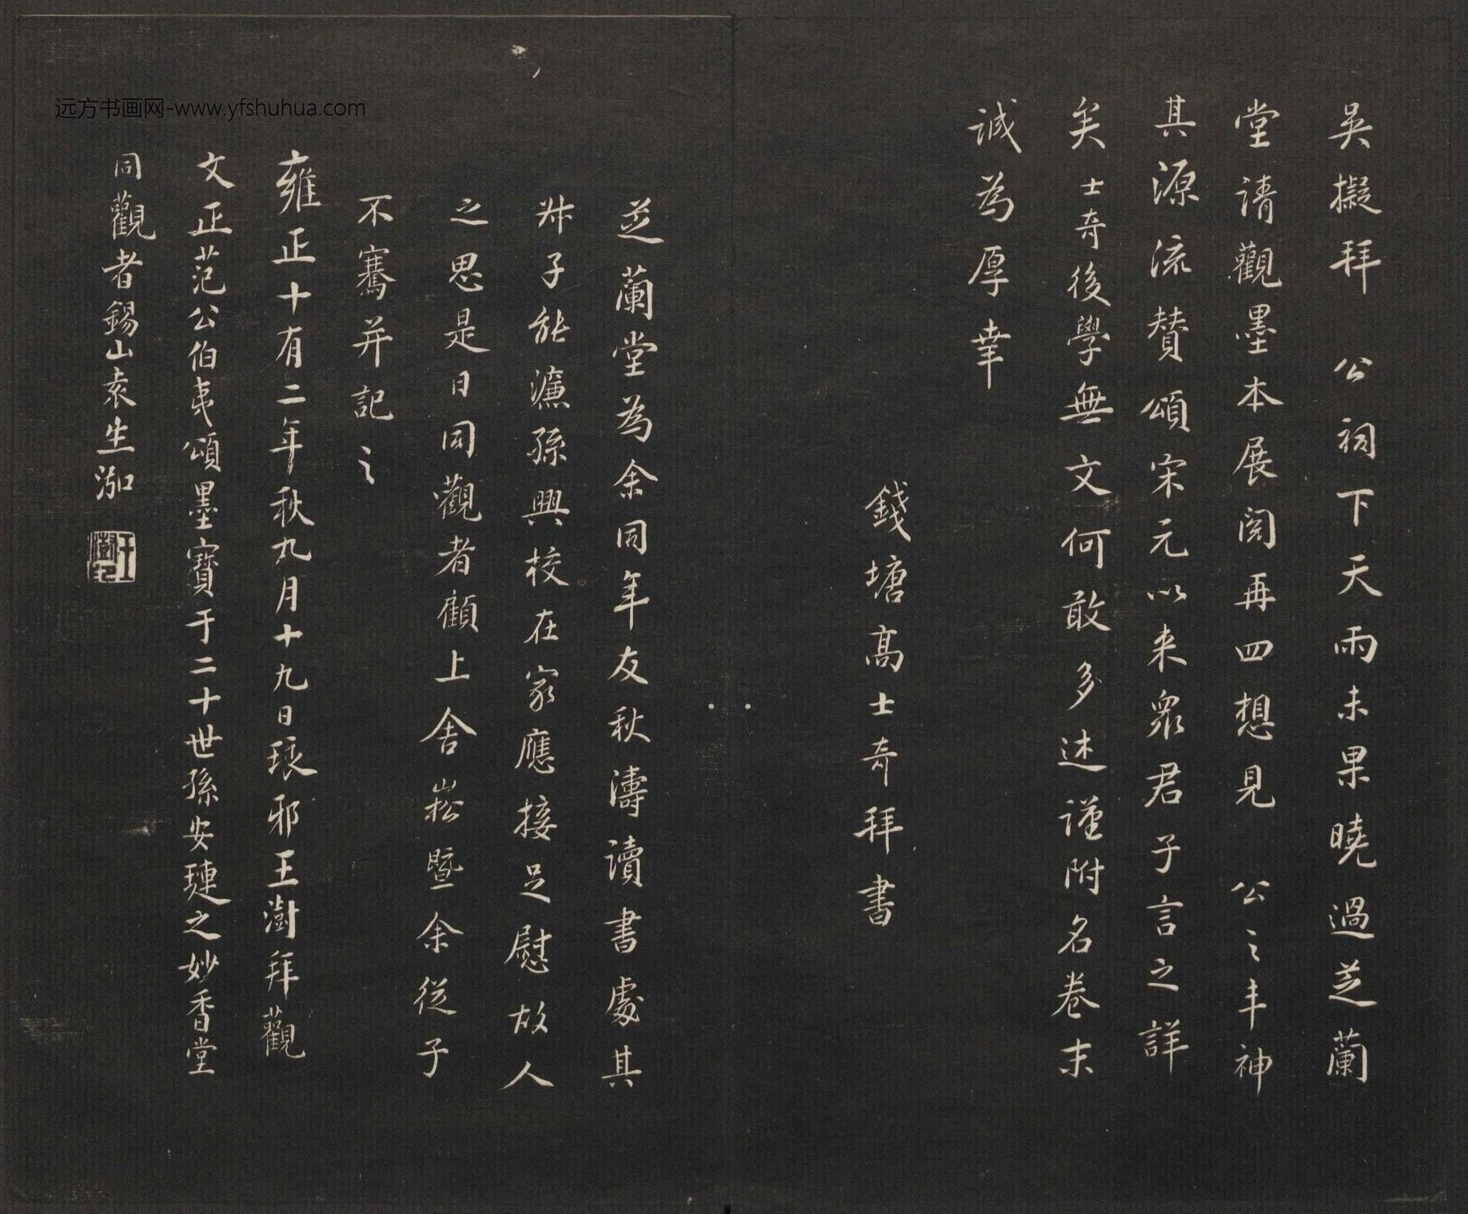 吳擬拜　公祠下天雨未果曉過芝蘭
堂請觀墨本展閱再四想見　公之丰神
其源流贊頌宋元以来眾君子言之詳
矣士奇後學無文何敢多述謹附名卷末
誠為厚幸
錢塘高士奇拜書
芝蘭堂為余同年友秋濤讀書處其
冢子能濂孫興校在家應接足慰故人
之思是日同觀者顧上舍崧暨余從子
不騫并記之
雍正十有二年秋九月十九日琅邪王澍拜觀
文正范公伯夷頌墨寶于二十世孫安璉之妙香堂
同觀者錫山袁生泓
远方书画网-www.yfshuhua.com